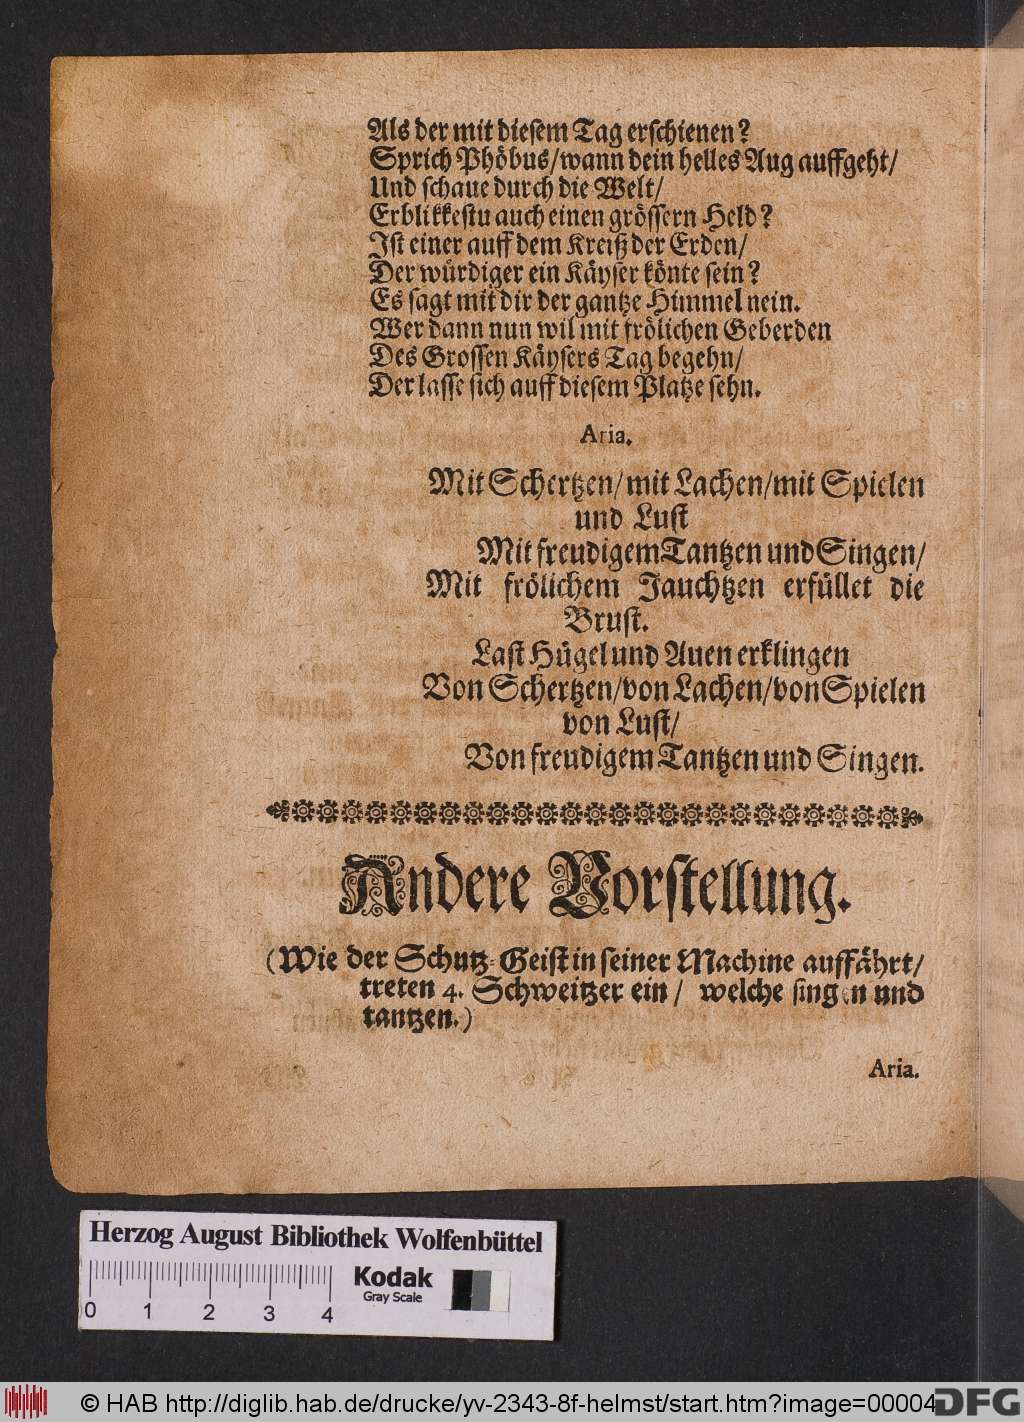 Als der mit diesem Tag erschienen?
Sprich Phöbus/wann dein helles Aug auffgeht/
Und schaue durch die Welt/
Erblikkestu auch einen grössern Held?
Ist einer auff dem Kreiß der Erden/
Der würdiger ein Käyser könte sein?
Es sagt mit dir der gantze Himmel nein.
Wer dann nun wil mit frölichen Geberden
Des Grossen Käysers Tag begehn/
Der lasse sich auff diesem Platze sehn.
Aria.
Mit Schertzen/mit Lachen/mit Spielen
und Lust
Mit freudigem Tantzen und Singen/
Mit frölichem Jauchtzen erfüllet die
Brust.
Last Hügel und Auen erklingen
Von Schertzen/von Lachen/von Spielen
von Lust/
Von freudigem Tantzen und Singen.
Andere Vorstellung.
(Wie der Schutz-Geist in seiner Machine auffährt/
treten 4. Schweitzer ein/ welche singen und
tantzen.)
Aria.
Herzog August Bibliothek Wolfenbüttel
Kodak
Gray Scale
0 1 2 3 4
© HAB http://diglib.hab.de/drucke/yv-2343-8f-helmst/start.htm?image=00004
DFG